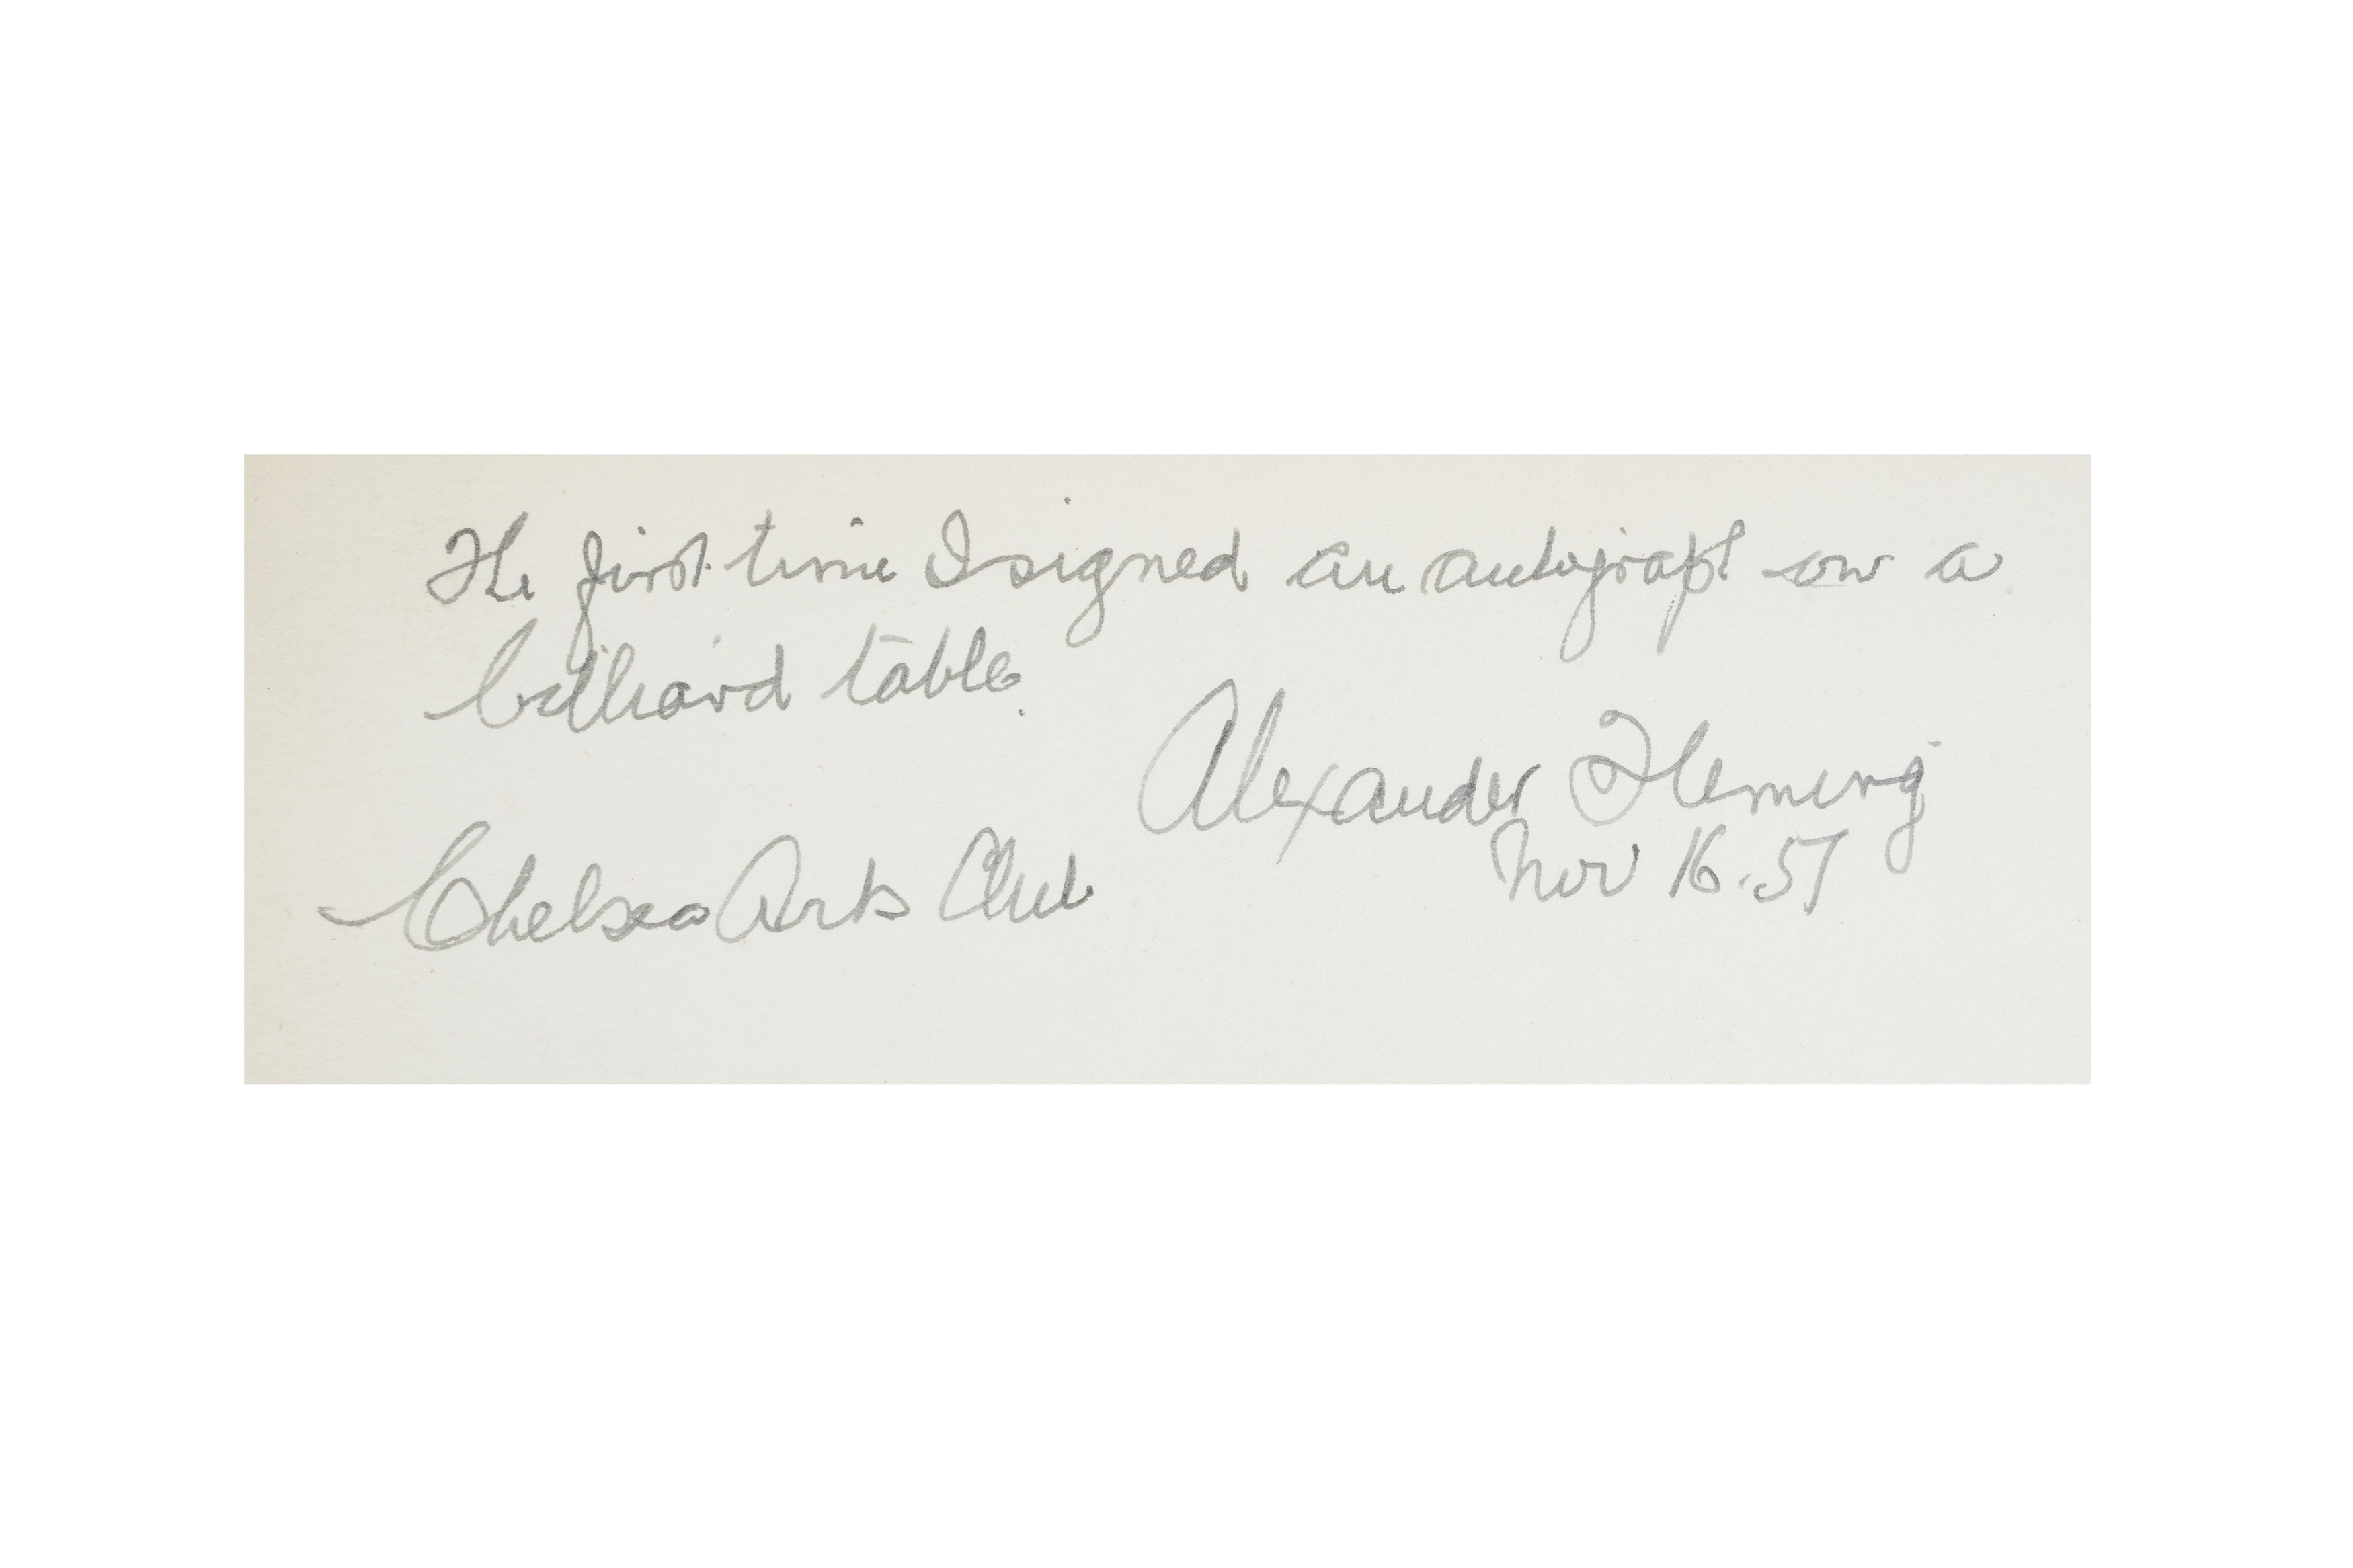 The first time I signed an autograph on a
billiard table.
Alexander Fleming
Nov 16.51
Chelsea Arts Club